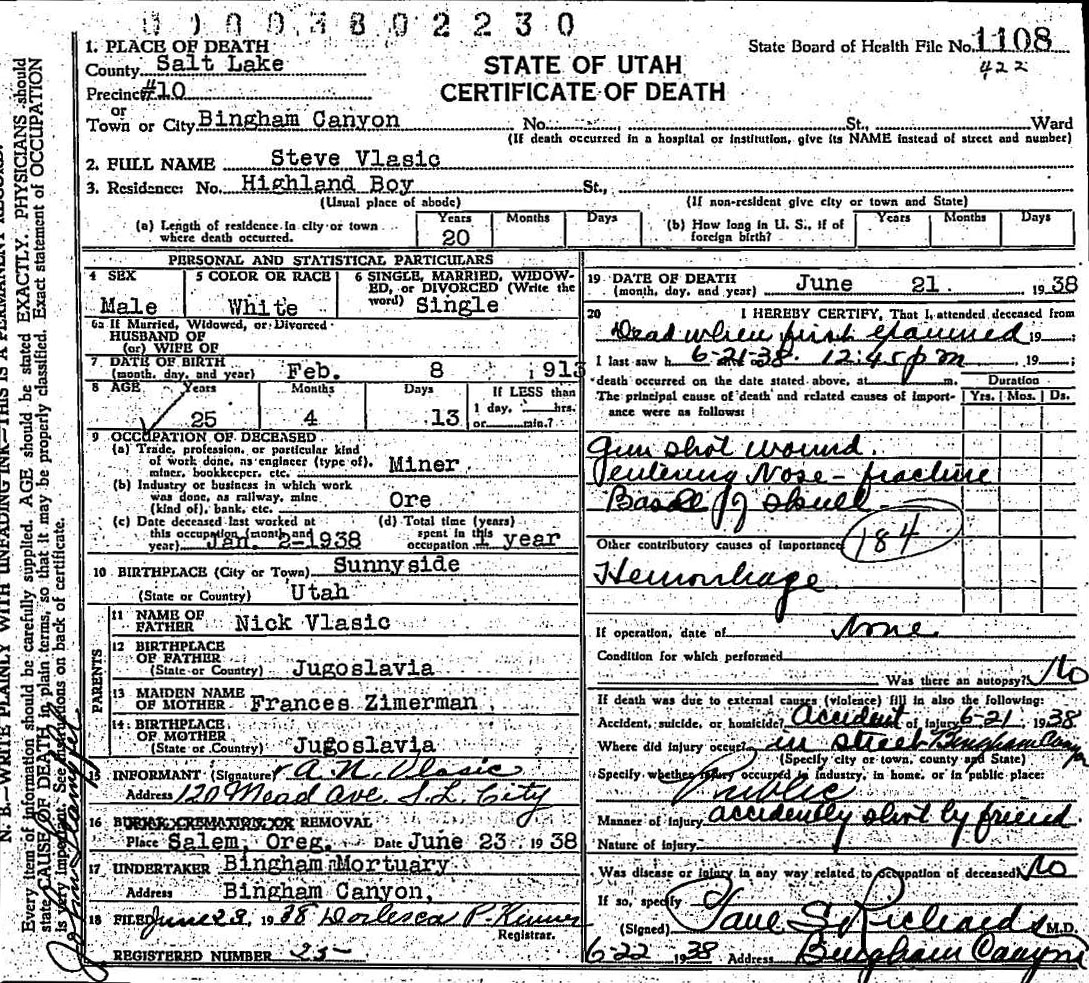 0 0 0 3 8 0 2 2 3 0
State Board of Health File No. 1108
422
STATE OF UTAH
CERTIFICATE OF DEATH
1. PLACE OF DEATH
County Salt Lake
Precinct #10
or
Town or City Bingham Canyon No. St., Ward
(If death occurred in a hospital or institution, give its NAME instead of street and number)
2. FULL NAME Steve Vlasic
3. Residence: No. Highland Boy St.,
(Usual place of abode) (If non-resident give city or town and State)
(a) Length of residence in city or town where death occurred. Years 20 Months Days
(b) How long in U. S., if of foreign birth? Years Months Days
PERSONAL AND STATISTICAL PARTICULARS
4 SEX Male
5 COLOR OR RACE White
6 SINGLE, MARRIED, WIDOWED, or DIVORCED (Write the word) Single
6a If Married, Widowed, or Divorced
HUSBAND OF
(or) WIFE OF
7 DATE OF BIRTH
(month, day, and year) Feb. 8 1913
8 AGE Years 25 Months 4 Days 13 If LESS than 1 day, hrs. or min.?
9 OCCUPATION OF DECEASED
(a) Trade, profession, or particular kind of work done, as engineer (type of), miner, bookkeeper, etc. Miner
(b) Industry or business in which work was done, as railway, mine (kind of), bank, etc. Ore
(c) Date deceased last worked at this occupation (month and year) Jan. 2-1938
(d) Total time (years) spent in this occupation 1 year
10 BIRTHPLACE (City or Town) Sunnyside
(State or Country) Utah
PARENTS
11 NAME OF FATHER Nick Vlasic
12 BIRTHPLACE OF FATHER
(State or Country) Jugoslavia
13 MAIDEN NAME OF MOTHER Frances Zimerman
14 BIRTHPLACE OF MOTHER
(State or Country) Jugoslavia
15 INFORMANT (Signature) A. N. Vlasic
Address 120 Mead Ave. S.L. City
16 BURIAL, CREMATION, OR REMOVAL
Place Salem, Oreg. Date June 23 1938
17 UNDERTAKER Bingham Mortuary
Address Bingham Canyon,
18 FILED June 23, 1938
Registrar.
REGISTERED NUMBER 25
19 DATE OF DEATH
(month, day, and year) June 21 1938
20 I HEREBY CERTIFY, That I attended deceased from
Dead when first examined 19
I last saw h 6-21-38. 12:45 pm, 19
death occurred on the date stated above, at m. Duration
The principal cause of death and related causes of importance were as follows: Yrs. Mos. Ds.
Gun shot wound.
entering Nose - fracture
Base of skull
184
Other contributory causes of importance
Hemorrhage
If operation, date of None
Condition for which performed
Was there an autopsy? No
If death was due to external causes (violence) fill in also the following:
Accident, suicide, or homicide? Accident of injury 6-21, 1938
Where did injury occur? in street Bingham Canyon
(Specify city or town, county and State)
Specify whether injury occurred in industry, in home, or in public place:
Public
Manner of injury accidently shot by friend
Nature of injury
Was disease or injury in any way related to occupation of deceased? No
If so, specify
(Signed) Richards M.D.
6-22 1938 Address Bingham Canyon
N. B.—WRITE PLAINLY WITH UNFADING INK—THIS IS A PERMANENT RECORD.
Every item of information should be carefully supplied. AGE should be stated EXACTLY. PHYSICIANS should
state CAUSE OF DEATH in plain terms, so that it may be properly classified. Exact statement of OCCUPATION
is very important. See instructions on back of certificate.